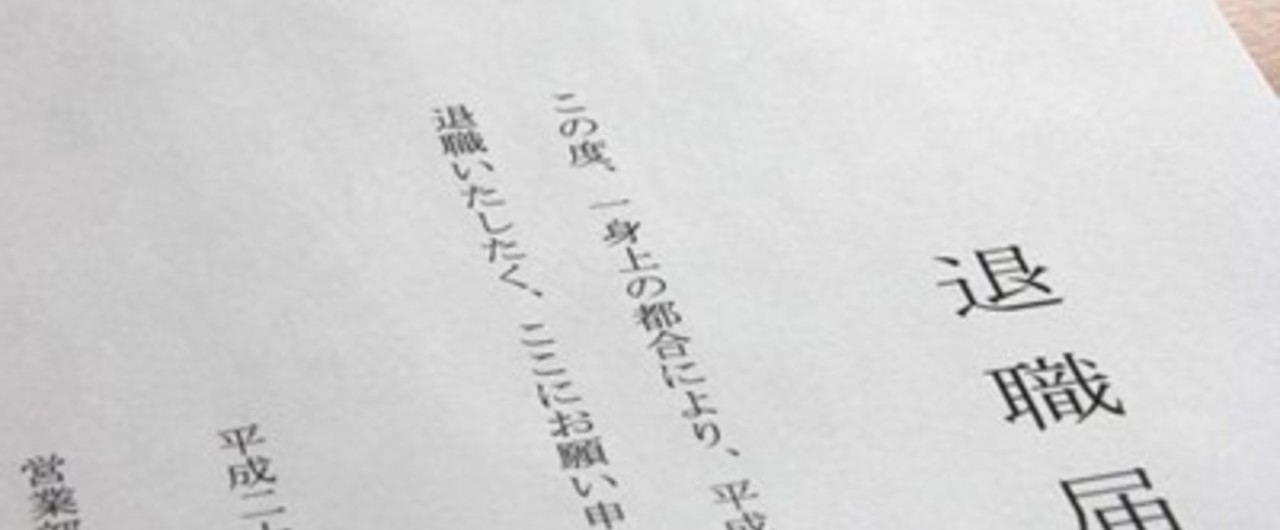 退職届
この度、一身上の都合により、平成
退職いたしたく、ここにお願い申
平成二十
営業部